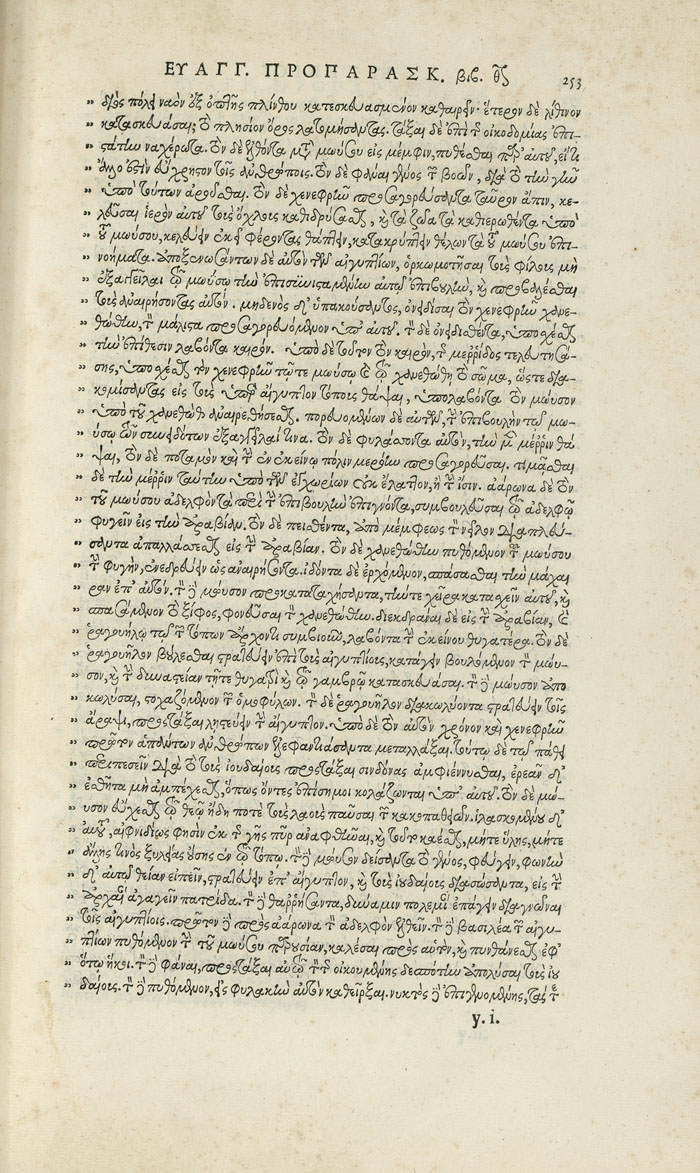 ΕΥΑΓΓ. ΠΡΟΠΑΡΑΣΚ. βιβ. θʹ 253
„ διὸς πόλει ναὸν ἐξ ὀπτῆς πλίνθου κατεσκευασμένον καθαιρεῖν· ἕτερον δὲ λίθινον
„ κατασκευάσαι, τὸ πλησίον ὄρος λατομήσαντας. τάξαι δὲ ἐπὶ τῆς οἰκοδομίας ἐπι-
„ στάτην ναχέρωτα. τὸν δὲ ἐλθόντα μετὰ μωύσου εἰς μέμφιν, πυθέσθαι παρ' αὐτοῦ, εἴ τι
„ ἄλλο ἐστὶν εὔχρηστον τοῖς ἀνθρώποις. τὸν δὲ φάναι γένος τῶν βοῶν, διὰ τὸ τὴν γῆν
„ ὑπὸ τούτων ἀροῦσθαι. τὸν δὲ χενεφρῆν προσαγορεύσαντα ταῦρον ἄπιν, κε-
„ λεῦσαι ἱερὸν αὐτοῦ τοὺς ὄχλους καθιδρύσασθαι, καὶ τὰ ζῶα τὰ καθιερωθέντα ὑπὸ
„ τοῦ μωύσου, κελεύειν ἐκεῖ φέροντας θάπτειν, κατακρύπτειν θέλοντα τὰ τοῦ μωύσου ἐπι-
„ νοήματα. ἀποξενωσάντων δὲ αὐτὸν τῶν αἰγυπτίων, ὁρκωμοτῆσαι τοὺς φίλους μὴ
„ ἐξαγγεῖλαι τῷ μωύσῳ τὴν ἐπισυνισταμένην αὐτῷ ἐπιβουλὴν, καὶ προβαλέσθαι
„ τοὺς ἀναιρήσοντας αὐτόν. μηδενὸς δ' ὑπακούσαντος, ὀνειδίσαι τὸν χενεφρῆν χανε-
„ θώθην, τὸν μάλιστα προσαγορευόμενον ὑπ' αὐτοῦ. τὸν δὲ ὀνειδισθέντα, ὑποσχέσθαι
„ τὴν ἐπίθεσιν λαβόντα καιρόν. ὑπὸ δὲ τοῦτον τὸν καιρὸν, τῆς μέρριδος τελευτησά-
„ σης, ὑποσχέσθαι τὸν χενεφρῆν τῶ τε μωύσῳ καὶ τῷ χανεθώθῃ τὸ σῶμα, ὥστε δια-
„ κομίσαντας εἰς τοὺς ὑπὲρ αἴγυπτον τόπους θάψαι, ὑπολαβόντα τὸν μώυσον
„ ὑπὸ τοῦ χανεθώθου ἀναιρεθήσεσθαι. πορευομένων δὲ αὐτῶν, τὴν ἐπιβουλὴν τῷ μω-
„ ύσῳ τῶν συνειδότων ἐξαγγεῖλαί τινα. τὸν δὲ φυλάσσοντα αὑτὸν, τὴν μὲν μέρριν θά
„ ψαι, τὸν δὲ ποταμὸν καὶ τὴν ἐν ἐκείνῳ πόλιν μερόην προσαγορεῦσαι. τιμᾶσθαι
„ δὲ τὴν μέρριν ταύτην ὑπὸ τῶν ἐγχωρίων οὐκ ἔλαττον, ἢ τὴν ἴσιν. ἀάρωνα δὲ τὸν
„ τοῦ μωύσου ἀδελφὸν τὰ περὶ τὴν ἐπιβουλὴν ἐπιγνόντα, συμβουλεῦσαι τῷ ἀδελφῷ
„ φυγεῖν εἰς τὴν ἀραβίαν. τὸν δὲ πεισθέντα, ἀπὸ μέμφεως τὸν νεῖλον διαπλεύ-
„ σαντα ἀπαλλάσσεσθαι εἰς τὴν ἀραβίαν. τὸν δὲ χανεθώθην πυθόμενον τοῦ μωύσου
„ τὴν φυγὴν, ἐνεδρεύειν ὡς ἀναιρήσοντα. ἰδόντα δὲ ἐρχόμενον, σπάσασθαι τὴν μάχαι
„ ραν ἐπ' αὐτόν. τὸν δὲ μώυσον προκαταταχήσαντα, τήν τε χεῖρα κατασχεῖν αὐτοῦ, καὶ
„ σπασάμενον τὸ ξίφος, φονεῦσαι τὸν χανεθώθην. διεκδρᾶναι δὲ εἰς τὴν ἀραβίαν, καὶ
„ ῥαγουήλῳ τῷ τῶν τόπων ἄρχοντι συμβιοῦν, λαβόντα τὴν ἐκείνου θυγατέρα. τὸν δὲ
„ ῥαγουῆλον βούλεσθαι στρατεύειν ἐπὶ τοὺς αἰγυπτίους, κατάγειν βουλόμενον τὸν μώυ-
„ σον, καὶ τὴν δυναστείαν τῇ τε θυγατρὶ καὶ τῷ γαμβρῷ κατασκευάσαι. τὸν δὲ μώυσον ἀπο
„ κωλύσαι, στοχαζόμενον τῶν ὁμοφύλων. τὸν δὲ ῥαγουῆλον διακωλύοντα στρατεύειν τοῖς
„ ἄραψι, προστάξαι λῃστεύειν τὴν αἴγυπτον. ὑπὸ δὲ τὸν αὐτὸν χρόνον καὶ χενεφρῆν
„ πρῶτον ἁπάντων ἀνθρώπων ἐλεφαντιάσαντα μεταλλάξαι. τούτῳ δὲ τῷ πάθει
„ περιπεσεῖν διὰ τὸ τοὺς ἰουδαίους προστάξαι σινδόνας ἀμφιέννυσθαι, ἐρεᾶν δ'
„ ἐσθῆτα μὴ ἀμπέχεσθαι, ὅπως ὄντες ἐπίσημοι κολάζωνται ὑπ' αὐτοῦ. τὸν δὲ μώ-
„ υσον εὔχεσθαι τῷ θεῷ ἤδη ποτὲ τοὺς λαοὺς παῦσαι τῶν κακοπαθειῶν. ἱλασκομένου δ'
„ αὐτοῦ, αἰφνιδίως φησὶν ἐκ τῆς γῆς πῦρ ἀναφθῆναι, καὶ τοῦτο κάεσθαι, μήτε ὕλης, μήτε
„ ἄλλης τινὸς ξυλείας οὔσης ἐν τῷ τόπῳ. τὸν δὲ μώυσον δείσαντα τὸ γεγονὸς, φεύγειν, φωνὴν
„ δ' αὐτῷ θείαν εἰπεῖν, στρατεύειν ἐπ' αἴγυπτον, καὶ τοὺς ἰουδαίους διασώσαντα, εἰς τὴν
„ ἀρχαίαν ἀγαγεῖν πατρίδα. τὸν δὲ θαρρήσαντα, δύναμιν πολεμίαν ἐπάγειν διαγνῶναι
„ τοῖς αἰγυπτίοις. πρῶτον δὲ πρὸς ἀάρωνα τὸν ἀδελφὸν ἐλθεῖν. τὸν δὲ βασιλέα τῶν αἰγυ-
„ πτίων πυθόμενον τὴν τοῦ μωύσου παρουσίαν, καλέσαι πρὸς αὑτὸν, καὶ πυνθάνεσθαι ἐφ'
„ ὅτῳ ἥκοι. τὸν δὲ φάναι, προστάξαι αὐτῷ τὸν τῆς οἰκουμένης δεσπότην ἀπολῦσαι τοὺς ἰου
„ δαίους. τὸν δὲ πυθόμενον, εἰς φυλακὴν αὐτὸν καθεῖρξαι. νυκτὸς δὲ ἐπιγενομένης, τάς τε
y. i.